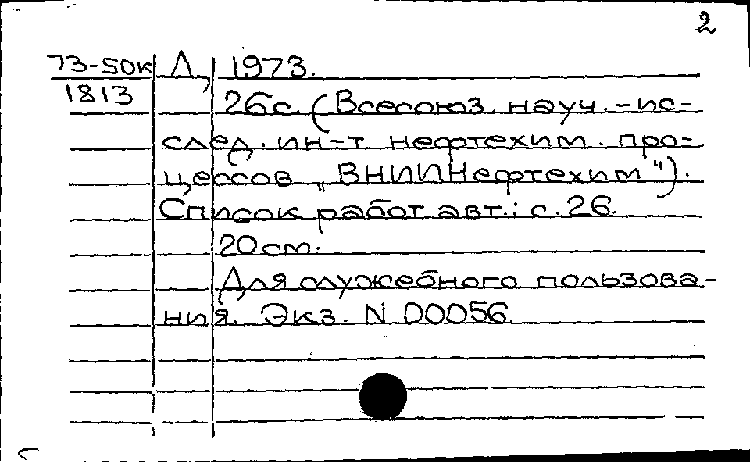 2
73-50к Л, 1973.
1813 26с. (Всесоюз. науч.-ис-
след. ин-т нефтехим. про-
цессов „ВНИИНефтехим").
Список работ авт.: с. 26.
20см.
Для служебного пользова-
ния. Экз. N 00056.